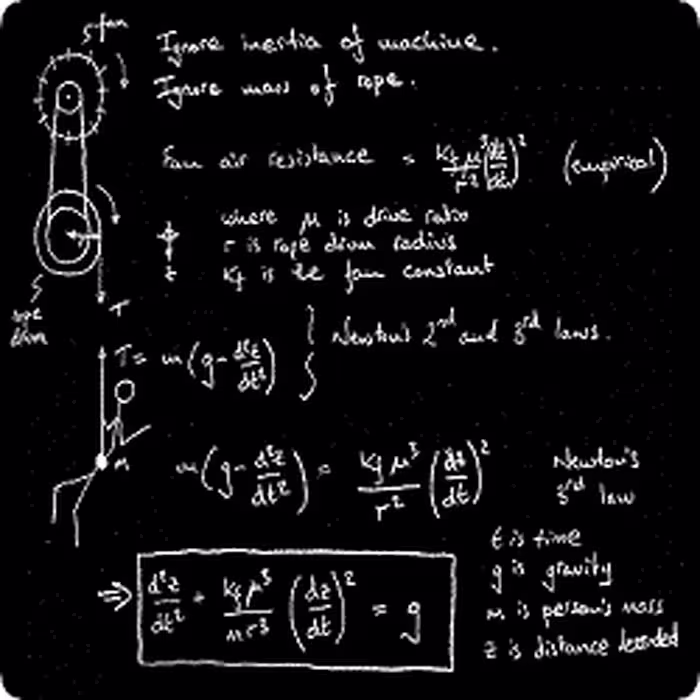 fan
Ignore inertia of machine.
Ignore mass of rope.
Fan air resistance = Kf μ³/r² (dz/dt)² (empirical)
where μ is drive ratio
r is rope drum radius
Kf is the fan constant
rope
drum
T
T = m(g - d²z/dt²) } Newton's 2nd and 3rd laws.
m
m(g - d²z/dt²) = Kf μ³/r² (dz/dt)² Newton's
3rd law
t is time
g is gravity
m is person's mass
z is distance descended
⇒ d²z/dt² + Kf μ³/mr³ (dz/dt)² = g